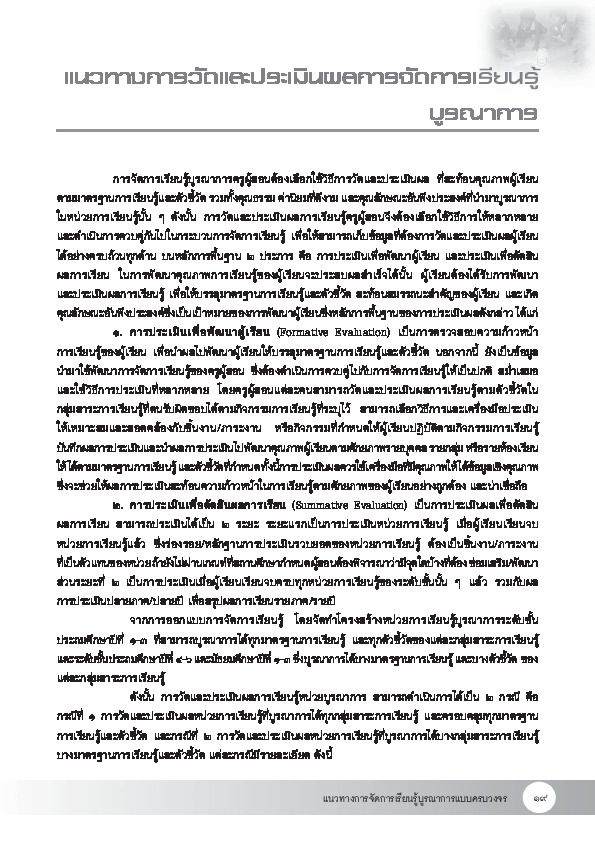 แนวทางการวัดและประเมินผลการจัดการเรียนรู้
บูรณาการ
การจัดการเรียนรู้บูรณาการครูผู้สอนต้องเลือกใช้วิธีการวัดและประเมินผล ที่สะท้อนคุณภาพผู้เรียน
ตามมาตรฐานการเรียนรู้และตัวชี้วัด รวมทั้งคุณธรรม ค่านิยมที่ดีงาม และคุณลักษณะอันพึงประสงค์ที่นำมาบูรณาการ
ในหน่วยการเรียนรู้นั้น ๆ ดังนั้น การวัดและประเมินผลการเรียนรู้ครูผู้สอนจึงต้องเลือกใช้วิธีการให้หลากหลาย
และดำเนินการควบคู่กันไปในกระบวนการจัดการเรียนรู้ เพื่อให้สามารถเก็บข้อมูลที่ต้องการวัดและประเมินผลผู้เรียน
ได้อย่างครบถ้วนทุกด้าน บนหลักการพื้นฐาน ๒ ประการ คือ การประเมินเพื่อพัฒนาผู้เรียน และประเมินเพื่อตัดสิน
ผลการเรียน ในการพัฒนาคุณภาพการเรียนรู้ของผู้เรียนจะประสบผลสำเร็จได้นั้น ผู้เรียนต้องได้รับการพัฒนา
และประเมินผลการเรียนรู้ เพื่อให้บรรลุมาตรฐานการเรียนรู้และตัวชี้วัด สะท้อนสมรรถนะสำคัญของผู้เรียน และเกิด
คุณลักษณะอันพึงประสงค์ซึ่งเป็นเป้าหมายของการพัฒนาผู้เรียนซึ่งหลักการพื้นฐานของการประเมินผลดังกล่าว ได้แก่
๑. การประเมินเพื่อพัฒนาผู้เรียน (Formative Evaluation) เป็นการตรวจสอบความก้าวหน้า
การเรียนรู้ของผู้เรียน เพื่อนำผลไปพัฒนาผู้เรียนให้บรรลุมาตรฐานการเรียนรู้และตัวชี้วัด นอกจากนี้ ยังเป็นข้อมูล
นำมาใช้พัฒนาการจัดการเรียนรู้ของครูผู้สอน ซึ่งต้องดำเนินการควบคู่ไปกับการจัดการเรียนรู้ให้เป็นปกติ สม่ำเสมอ
และใช้วิธีการประเมินที่หลากหลาย โดยครูผู้สอนแต่ละคนสามารถวัดและประเมินผลการเรียนรู้ตามตัวชี้วัดใน
กลุ่มสาระการเรียนรู้ที่ตนรับผิดชอบได้ตามกิจกรรมการเรียนรู้ที่ระบุไว้ สามารถเลือกวิธีการและเครื่องมือประเมิน
ให้เหมาะสมและสอดคล้องกับชิ้นงาน/ภาระงาน หรือกิจกรรมที่กำหนดให้ผู้เรียนปฏิบัติตามกิจกรรมการเรียนรู้
บันทึกผลการประเมินและนำผลการประเมินไปพัฒนาคุณภาพผู้เรียนตามศักยภาพรายบุคคล รายกลุ่ม หรือรายห้องเรียน
ให้ได้ตามมาตรฐานการเรียนรู้ และตัวชี้วัดที่กำหนดทั้งนี้การประเมินควรใช้เครื่องมือที่มีคุณภาพให้ได้ข้อมูลเชิงคุณภาพ
ซึ่งจะช่วยให้ผลการประเมินสะท้อนความก้าวหน้าในการเรียนรู้ตามศักยภาพของผู้เรียนอย่างถูกต้อง และน่าเชื่อถือ
๒. การประเมินเพื่อตัดสินผลการเรียน (Summative Evaluation) เป็นการประเมินผลเพื่อตัดสิน
ผลการเรียน สามารถประเมินได้เป็น ๒ ระยะ ระยะแรกเป็นการประเมินหน่วยการเรียนรู้ เมื่อผู้เรียนเรียนจบ
หน่วยการเรียนรู้แล้ว ซึ่งร่องรอย/หลักฐานการประเมินรวบยอดของหน่วยการเรียนรู้ ต้องเป็นชิ้นงาน/ภาระงาน
ที่เป็นตัวแทนของหน่วยถ้ายังไม่ผ่านเกณฑ์ที่สถานศึกษากำหนดผู้สอนต้องพิจารณาว่ามีจุดใดบ้างที่ต้อง ซ่อมเสริม/พัฒนา
ส่วนระยะที่ ๒ เป็นการประเมินเมื่อผู้เรียนเรียนจบครบทุกหน่วยการเรียนรู้ของระดับชั้นนั้น ๆ แล้ว รวมกับผล
การประเมินปลายภาค/ปลายปี เพื่อสรุปผลการเรียนรายภาค/รายปี
จากการออกแบบการจัดการเรียนรู้ โดยจัดทำโครงสร้างหน่วยการเรียนรู้บูรณาการระดับชั้น
ประถมศึกษาปีที่ ๑-๓ ที่สามารถบูรณาการได้ทุกมาตรฐานการเรียนรู้ และทุกตัวชี้วัดของแต่ละกลุ่มสาระการเรียนรู้
และระดับชั้นประถมศึกษาปีที่ ๔-๖ และมัธยมศึกษาปีที่ ๑-๓ ซึ่งบูรณาการได้บางมาตรฐานการเรียนรู้ และบางตัวชี้วัด ของ
แต่ละกลุ่มสาระการเรียนรู้
ดังนั้น การวัดและประเมินผลการเรียนรู้หน่วยบูรณาการ สามารถดำเนินการได้เป็น ๒ กรณี คือ
กรณีที่ ๑ การวัดและประเมินผลหน่วยการเรียนรู้ที่บูรณาการได้ทุกกลุ่มสาระการเรียนรู้ และครอบคลุมทุกมาตรฐาน
การเรียนรู้และตัวชี้วัด และกรณีที่ ๒ การวัดและประเมินผลหน่วยการเรียนรู้ที่บูรณาการได้บางกลุ่มสาระการเรียนรู้
บางมาตรฐานการเรียนรู้และตัวชี้วัด แต่ละกรณีมีรายละเอียด ดังนี้
แนวทางการจัดการเรียนรู้บูรณาการแบบครบวงจร ๑๙